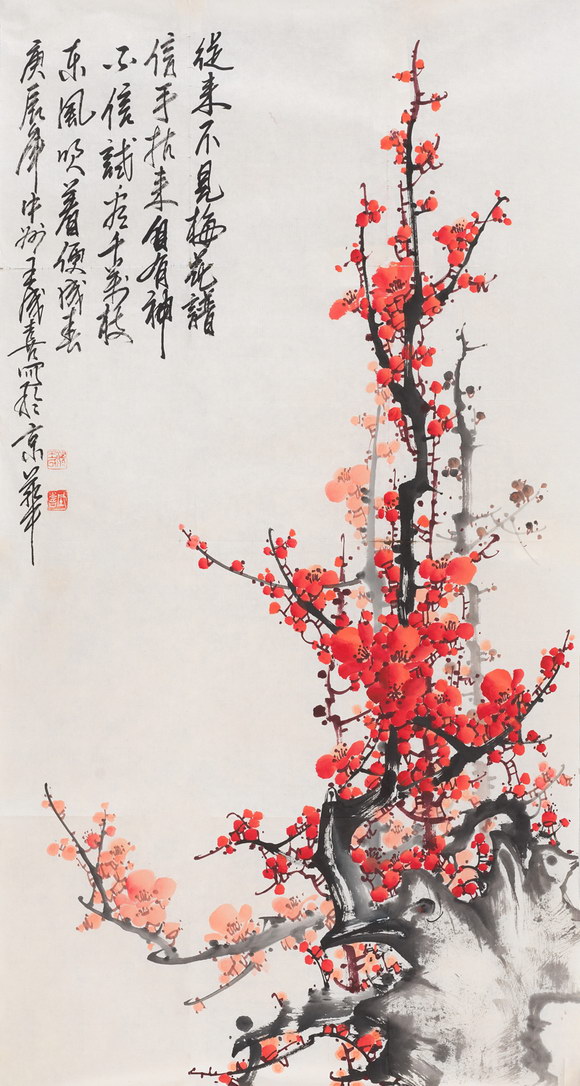 從来不見梅花譜
信手拈来自有神
不信試看千萬枝
东風吹着便成春
庚辰年中州王成喜写於京華